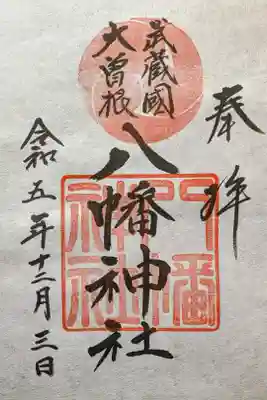 奉拜
武蔵國
大曽根
八幡神社
令和五年十二月三日
八幡神社